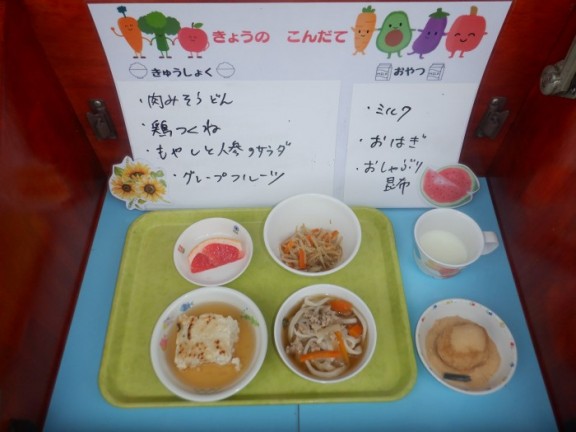 きょうの こんだて
きゅうしょく
・肉みそうどん
・鶏つくね
・もやしと人参のサラダ
・グレープフルーツ
おやつ
・ミルク
・おはぎ
・おしゃぶり
昆布